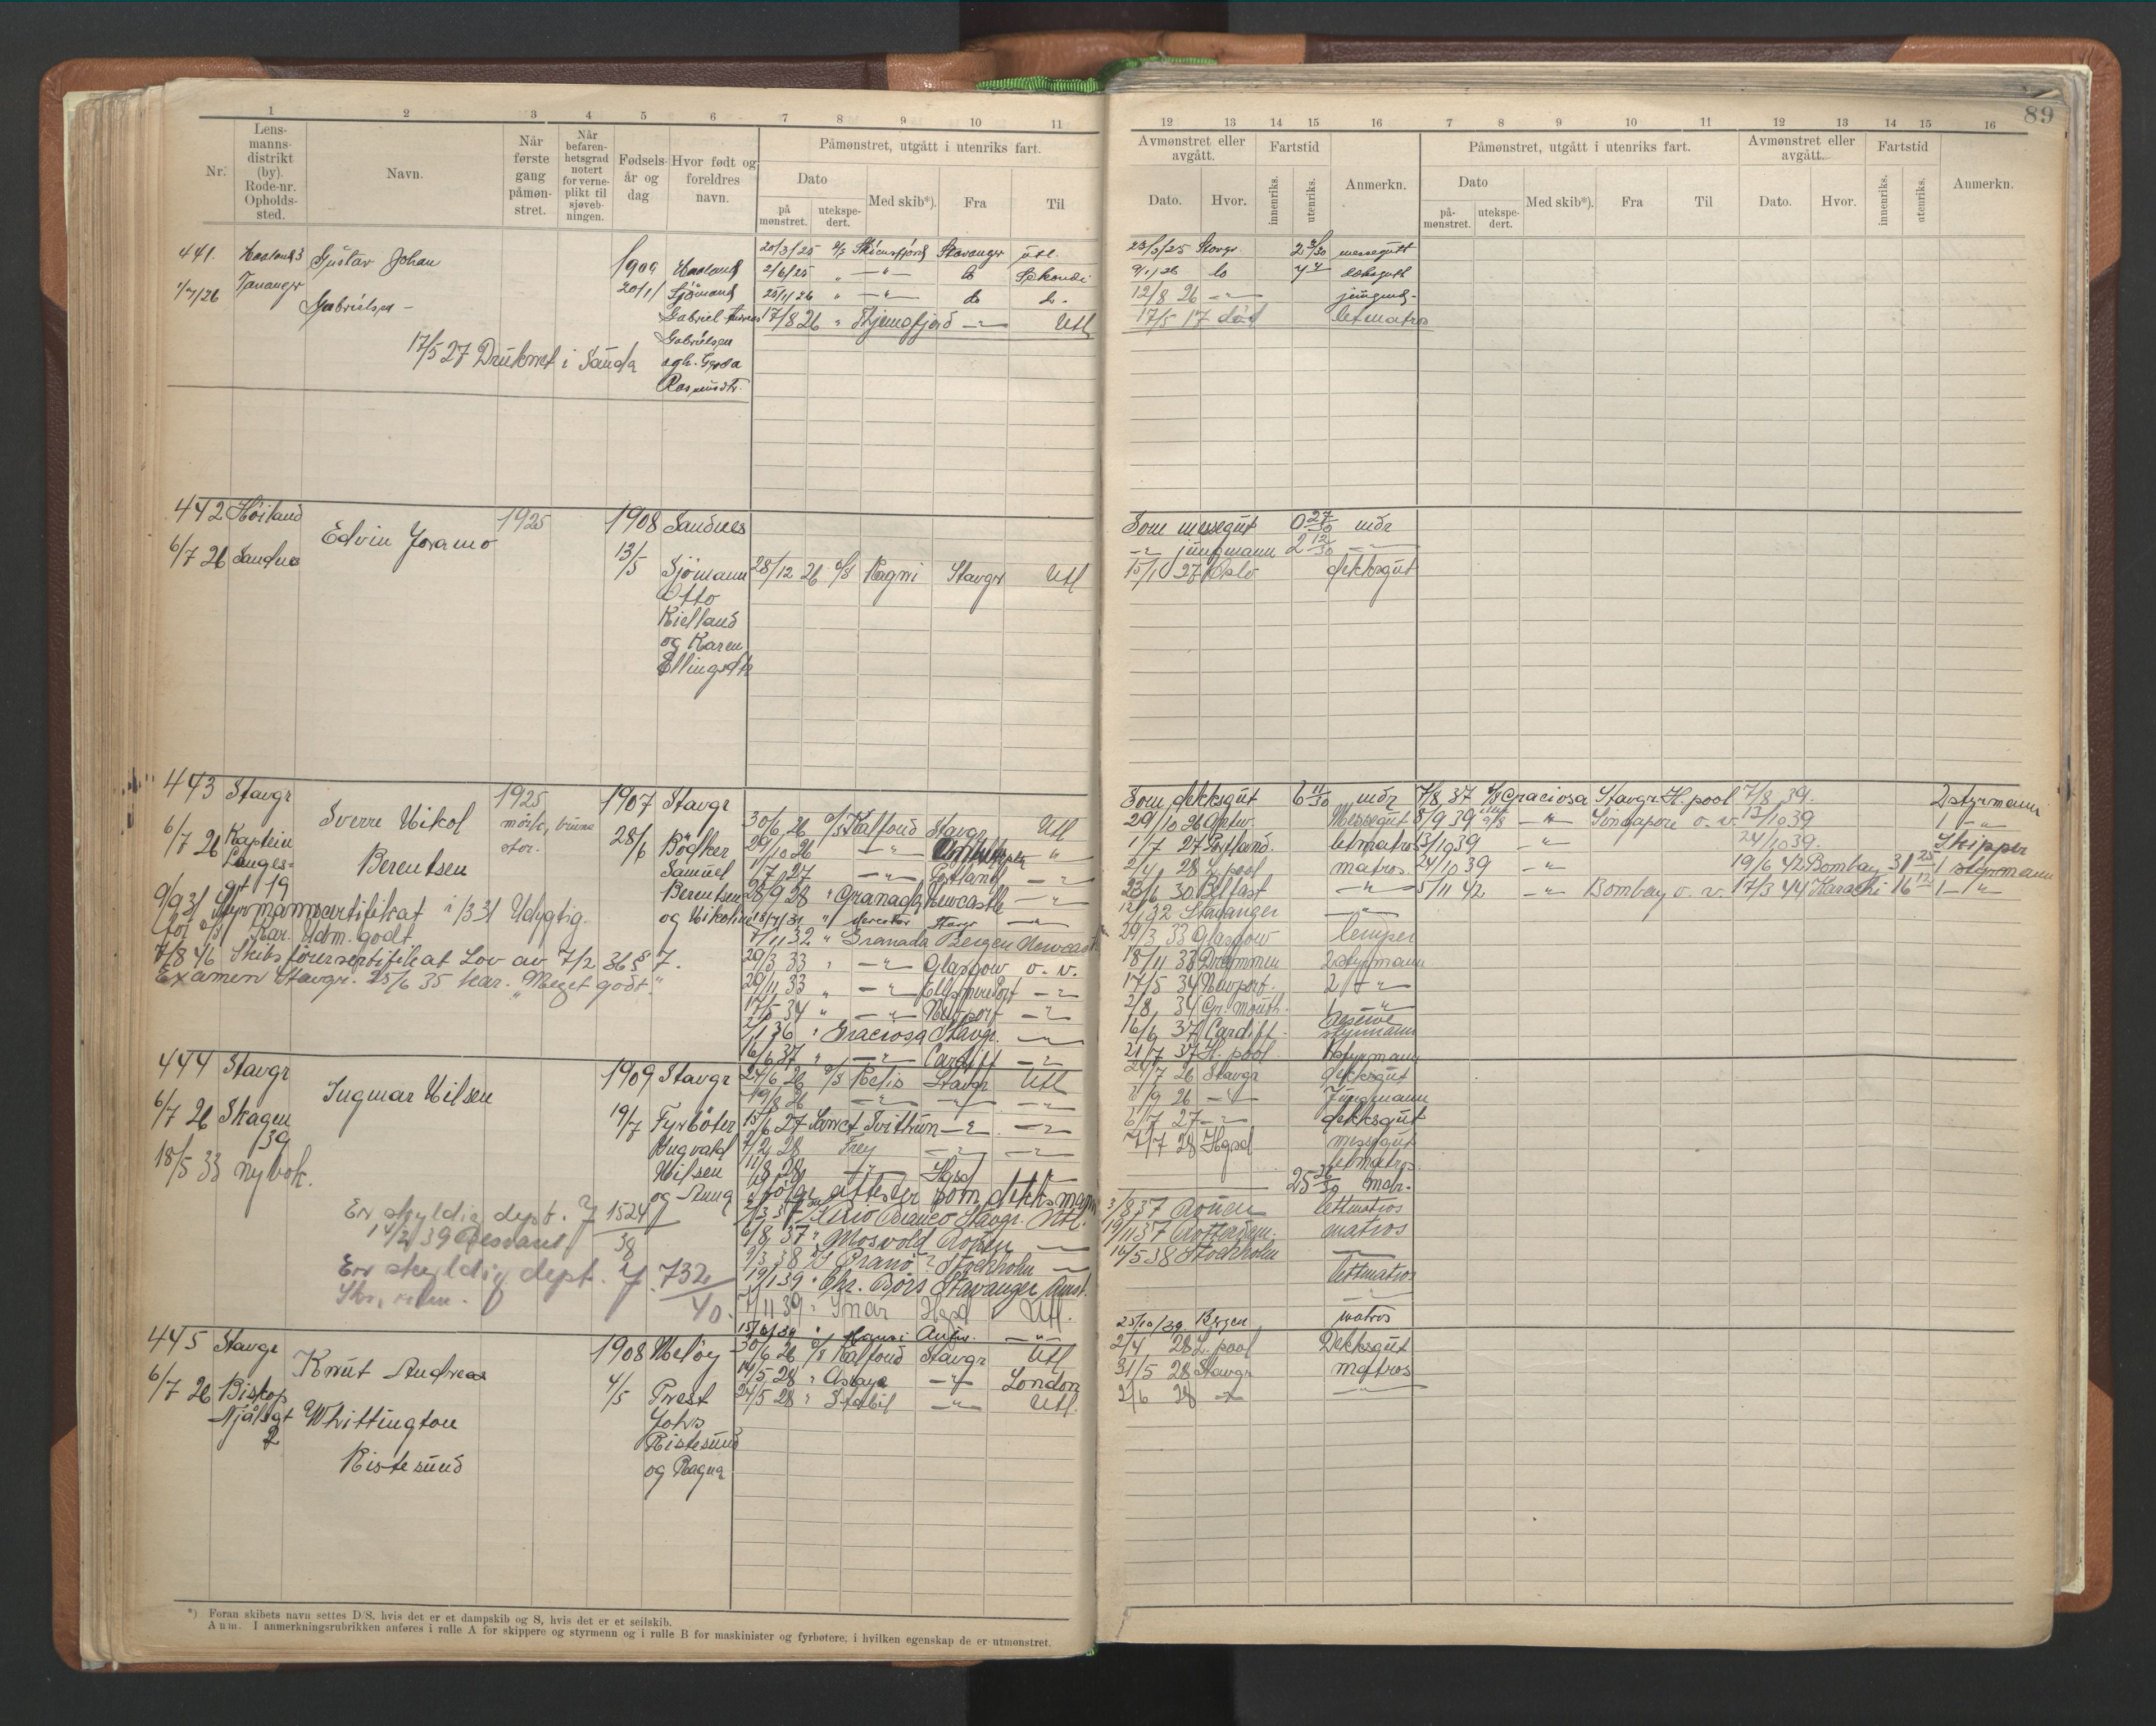 89
1 2 3 4 5 6 7 8 9 10 11
Nr.
Lens-
manns-
distrikt
(by).
Rode-nr.
Opholds-
sted.
Navn.
Når
første
gang
påmøn-
stret.
Når
befaren-
hetsgrad
notert
for verne-
plikt til
sjøveb-
ningen.
Fødsels-
år og
dag
Hvor født og
foreldres
navn.
Påmønstret, utgått i utenriks fart.
Dato
på
mønstret.
utekspe-
dert.
Med skib*).
Fra
Til
12 13 14 15 16 7 8 9 10 11 12 13 14 15 16
Avmønstret eller
avgått.
Dato.
Hvor.
Fartstid
innenriks.
utenriks.
Anmerkn.
Påmønstret, utgått i utenriks fart.
Dato
på-
mønstret.
utekspe-
dert.
Med skib*).
Fra
Til
Avmønstret eller
avgått.
Dato.
Hvor.
Fartstid
innenriks.
utenriks.
Anmerkn.
441.
Tananger
Gustav Johan
Gabrielsen
1909
20/1
Haaland
Sjömand
Gabriel
Gabrielsen
og h. Gerda
17/5 27 Druknet i Sauda
20/3/25 Stavanger utl.
2/6/25 do
25/1/26 do do
17/8 26 " Skjensfjord Utl
23/5/25 Stavgr. messegutt
9/1/26 do dæksgutt
12/8 26 jungmd.
17/5 17 död letmatros
442 Höiland
6/7 26 Sandnes
Edvin Joramo
1925
1908 Sandnes
13/5
Sjömann
Otto
Kielland
og Karen
Ellingsdtr
28/12 26 d/s Ragni Stavgr Utl
Som messegut 0 27/30 mdr
-"- jungmann 2 12/30
15/1 27 Oslo dekksgut
443 Stavgr
6/7 26 Kaptein
Langes-
gt 19
Sverre Nikol
Berentsen
1925
mörk, brune
stor.
1907 Stavgr
28/6 Bödker
Samuel
Berentsen
og Nikoline
9/9 31 Styrmannsertifikat Udygtig.
7/8 46 Skibsförersertifikat Lov av 7/2 36 § 7.
Examen Stavgr. 25/6 35 kar. "Meget godt."
30/6 26 d/s Kalfond Stavgr Utl
29/10 26
1/7 27 Portland
28/9 28 " Granada Newcastle
7/11 32 " Granada Bergen Newcast
29/3 33 " Glasgow o. v.
29/11 33 " Ellsmere Port
17/5 34 " Newport
2/1 36 " Graciosa Stavgr.
16/6 37 " Cardiff
Som dekksgut 6 11/30 mdr
29/10 26 Messegut
1/7 27 Portland. letmatros
2/4 28 L. pool matros
23/6 30 Belfast
Stavanger
29/3 33 Glasgow lemper
18/11 33 Drammen 2 styrmann
17/5 34 Newport. 2
2/8 34 Gr. mouth. 1
16/6 37 Cardiff. Reserve styrmann
21/7 37 H. pool. styrmann
7/8 37 Graciosa Stavgr. H. pool 7/8 39. 2 styrmann
8/9 39 Singapore o. v. 13/10 39 1
13/10 39 24/10 39. Skipper
24/10 39 19/6 42 Bombay 31 25 1 styrmann
5/11 42 Bombay o. v. 17/3 44 Karachi 16 12 1
444 Stavgr
6/7 26 Skagen
39
18/5 33 ny bok.
Ingmar Nilsen
1909 Stavgr
19/7 Fyrböter
Ingvald
Nilsen
og Anna
Er skyldig dept. 1524
38
14/2 39
Er skyldig dept. 732
40.
24/6 26 d/s Stavgr Utl
19/8 26
15/6 27 Sanct Svithun
7/2 28 Frey
11/8 28 Hgsd
Ifölge attester som dekksmann
2/3 37 Rio Branco Stavgr. Utl.
6/8 37 " Mosvold Rouen
9/3 38 Pranö Stockholm
19/1 39 " Chr. Börs Stavanger Amst.
7/11 39 " Snar Hgsd Utl.
24/7 26 Stavgr dekksgut
9 26 Jungmann
6/7 27 dekksgut
7/7 28 Hgsd messegut
letmatros
25 26/30 mdr.
3/8 37 Rouen lettmatros
19/11 37 Rotterdam. matros
16/5 38 Stockholm
lettmatros
25/10/39 Bergen matros
445 Stavgr
6/7 26 Biskop
Njålsgt
2
Knut Andreas
Whittington
Ristesund
1908 Meloy
4/5 Prest
Johs
Ristesund
og Ragna
30/6 26 d/s Kalfond Stavgr Utl
14/5 28 " London
24/5 28 " Stabil Utl.
2/4 28 L. pool Dekksgut
31/5 28 Stavgr matros
2/6 28
*) Foran skibets navn settes D/S, hvis det er et dampskib og S, hvis det er et seilskib.
Anm. I anmerkningsrubrikken anføres i rulle A for skippere og styrmenn og i rulle B for maskinister og fyrbøtere, i hvilken egenskap de er utmønstret.